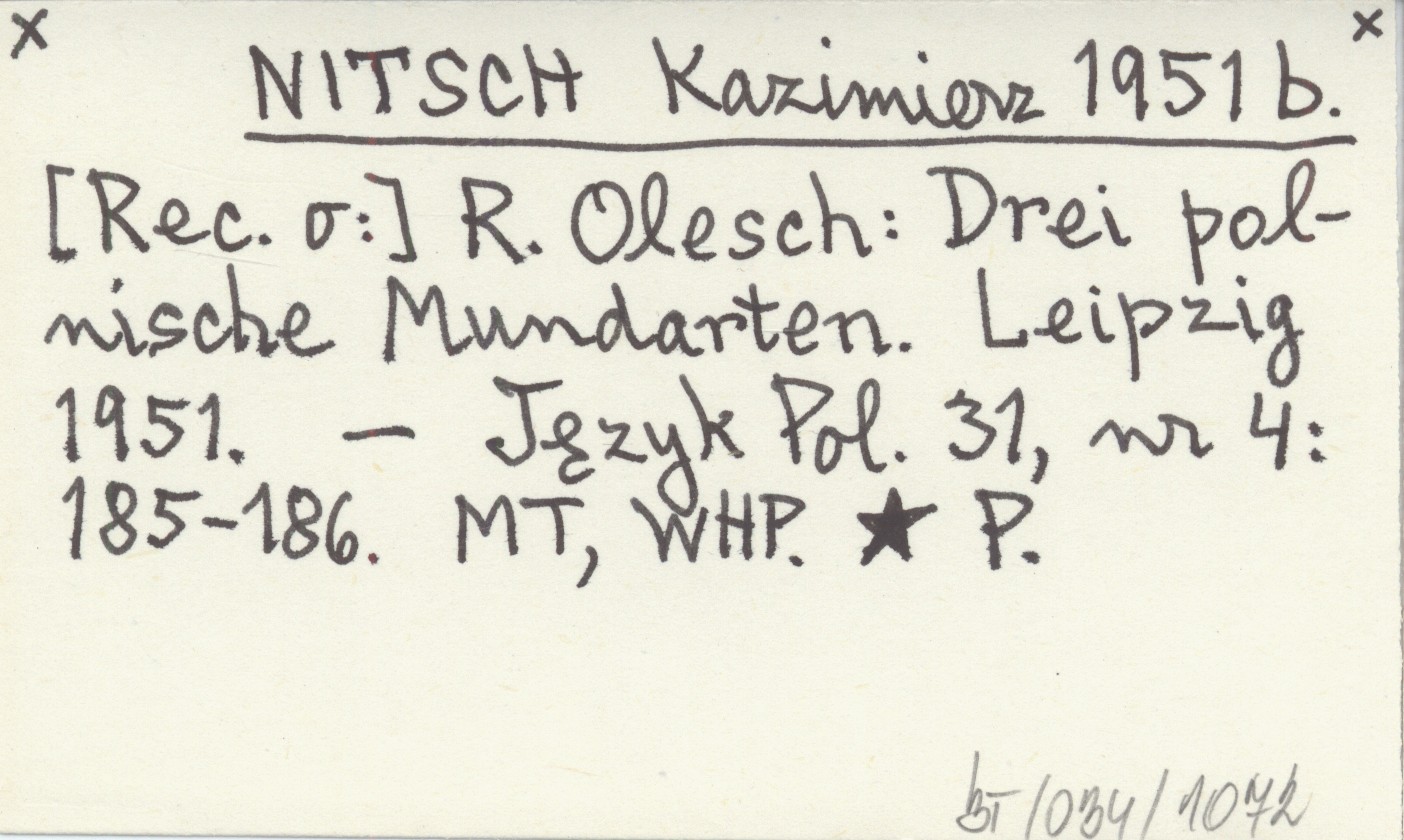 x x
NITSCH Kazimierz 1951 b.
[Rec. o:] R. Olesch: Drei pol-
nische Mundarten. Leipzig
1951. — Język Pol. 31, nr 4:
185-186. MT, WHP. ★ P.
BT/034/1072